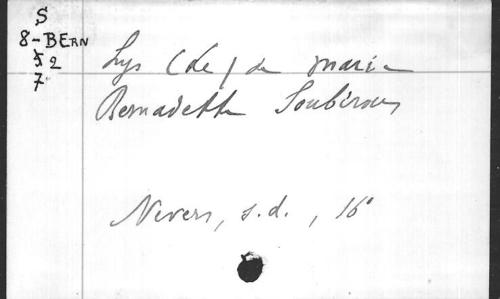 S
8-BERN
52
7
Lys (le) de Marie
Bernadette Soubirous
Nevers, s.d., 16°